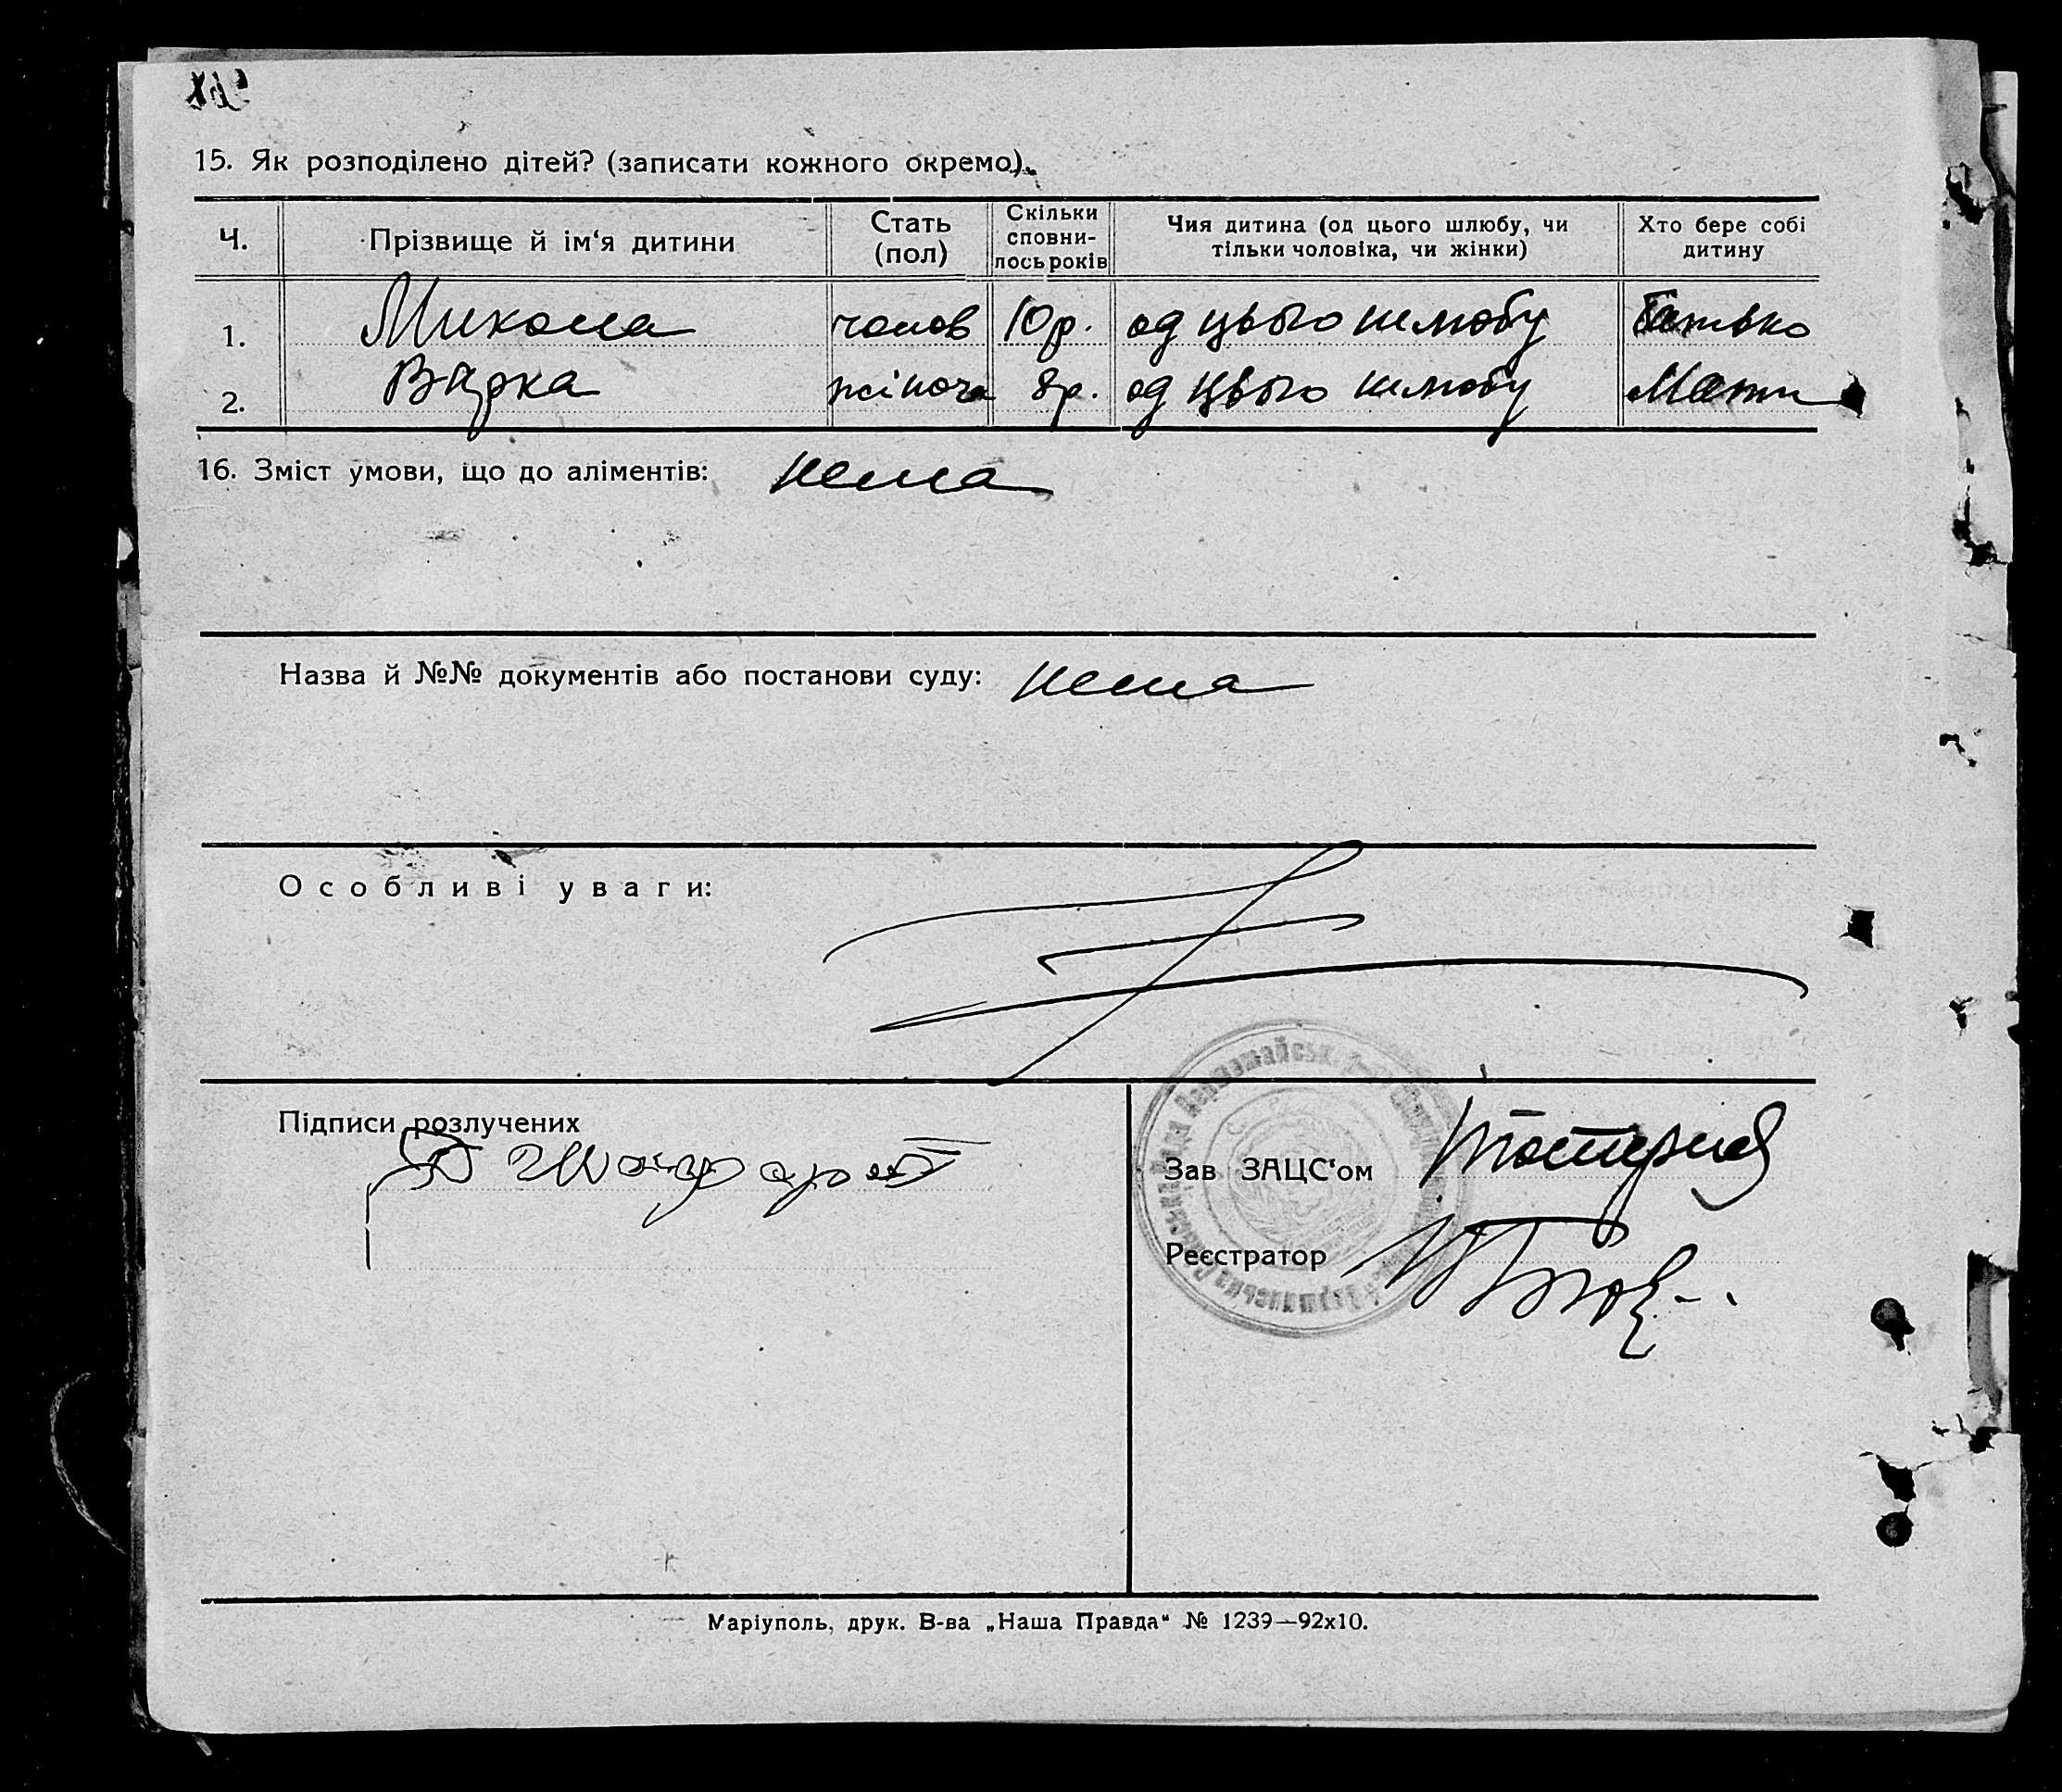 15. Як розподілено дітей? (записати кожного окремо).
Ч. Прізвище й ім‘я дитини Стать (пол) Скільки сповни- лось років Чия дитина (од цього шлюбу, чи тільки чоловіка, чи жінки) Хто бере собі дитину
1. Микола чолов 10 р. од цього шлюбу Батько
2. Варка жіноча 8 р. од цього шлюбу Мати
16. Зміст умови, що до аліментів: нема
Назва й №№ документів або постанови суду: нема
Особливі уваги:
Підписи розлучених
Зав ЗАЦС‘ом
Реєстратор
Маріуполь, друк. В-ва „Наша Правда“ № 1239—92х10.